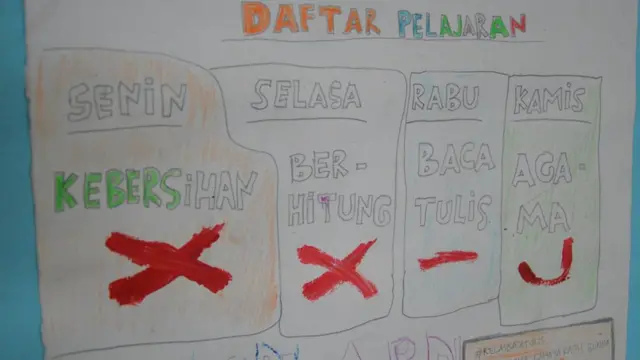 DAFTAR PELAJARAN
SENIN
KEBERSIHAN
SELASA
BER-
HITUNG
RABU
BACA
TULIS
KAMIS
AGA-
MA